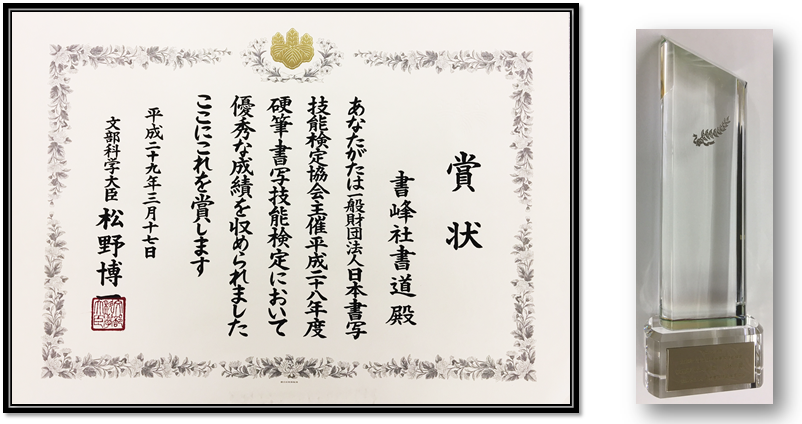 賞状
書峰社書道 殿
あなたがたは一般財団法人日本書写
技能検定協会主催平成二十八年度
硬筆書写技能検定において
優秀な成績を収められました
ここにこれを賞します
平成二十九年三月十七日
文部科学大臣 松野博一